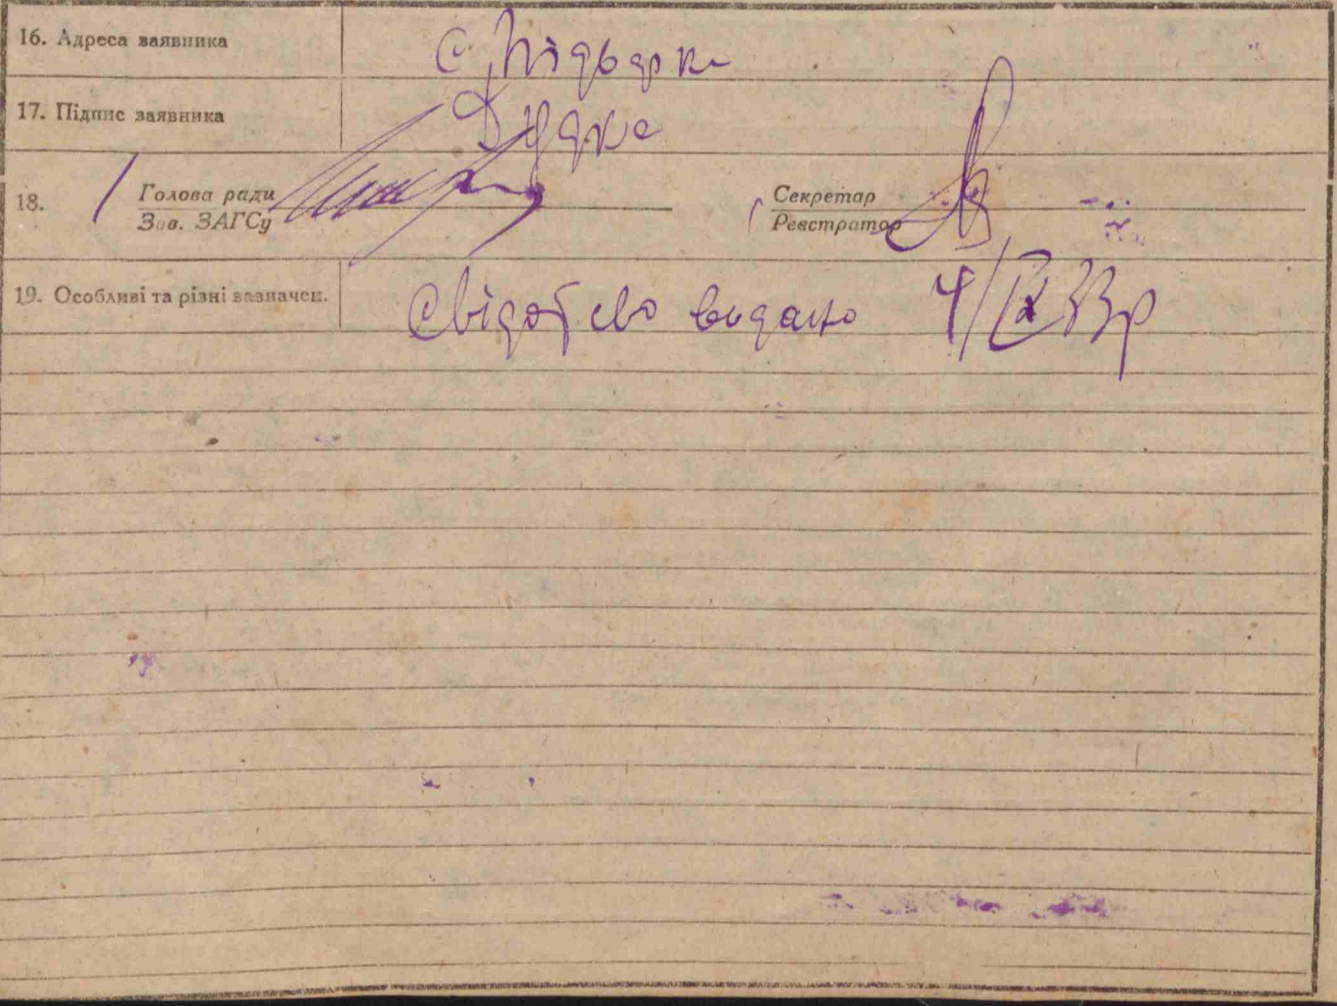 16. Адреса заявника с. Підварки
17. Підпис заявника Дудка
18. Голова ради Секретар
Зав. ЗАГСу Реєстратор
19. Особливі та різні зазначен. Свідотство видано 4/IX 33 р